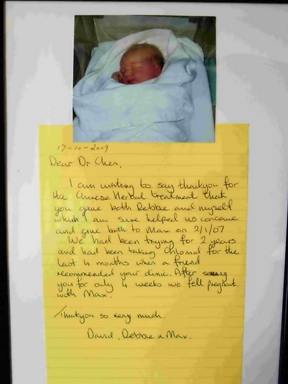 17-10-2007
Dear Dr Chen,
I am writing to say thankyou for
the Chinese Herbal treatment that
you gave both Debbie and myself
which I am sure helped us conceive
and give birth to Max on 2/1/07
We had been trying for 2 years
and had been taking Chlomid for the
last 4 months when a friend
recommended your clinic. After seeing
you for only 4 weeks we fell pregnant
with Max.
Thankyou so very much.
David, Debbie & Max.